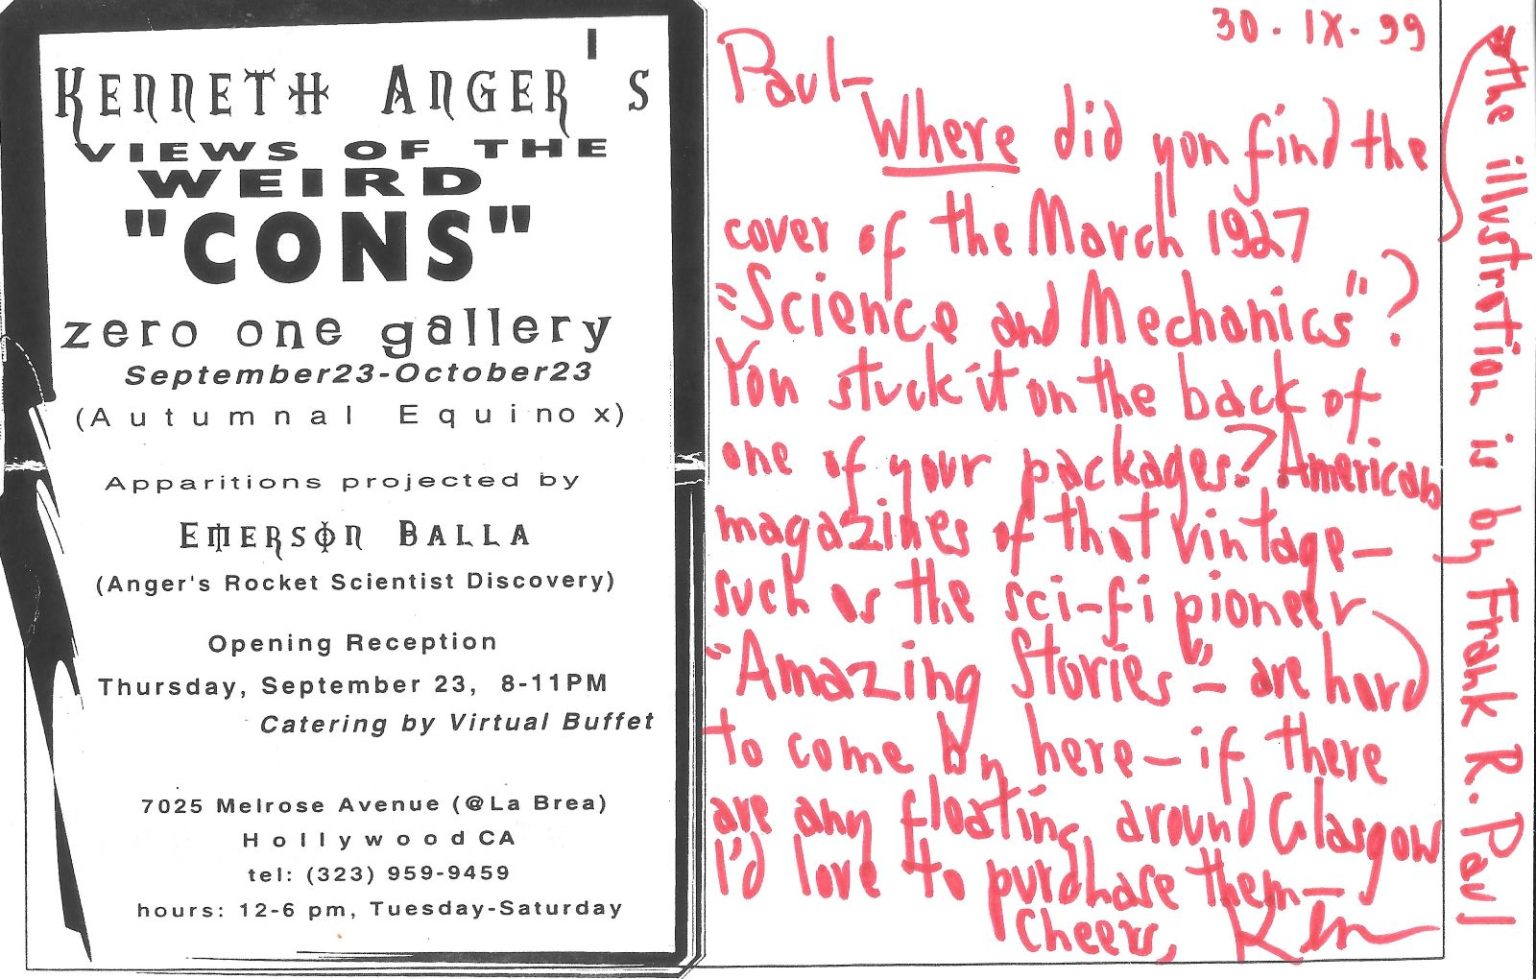 KENNETH ANGER'S
VIEWS OF THE
WEIRD
"CONS"
zero one gallery
September23-October23
(Autumnal Equinox)
Apparitions projected by
EMERSON BALLA
(Anger's Rocket Scientist Discovery)
Opening Reception
Thursday, September 23, 8-11PM
Catering by Virtual Buffet
7025 Melrose Avenue (@La Brea)
Hollywood CA
tel: (323) 959-9459
hours: 12-6 pm, Tuesday-Saturday
30 · IX · 99
Paul—
Where did you find the
cover of the March 1927
"Science and Mechanics"?
You stuck it on the back of
one of your packages? American
magazines of that vintage—
such as the sci-fi pioneer
"Amazing Stories" — are hard
to come by here — if there
are any floating around Glasgow
I'd love to purchase them—
Cheers, Ken
the illustration is by Frank R. Paul